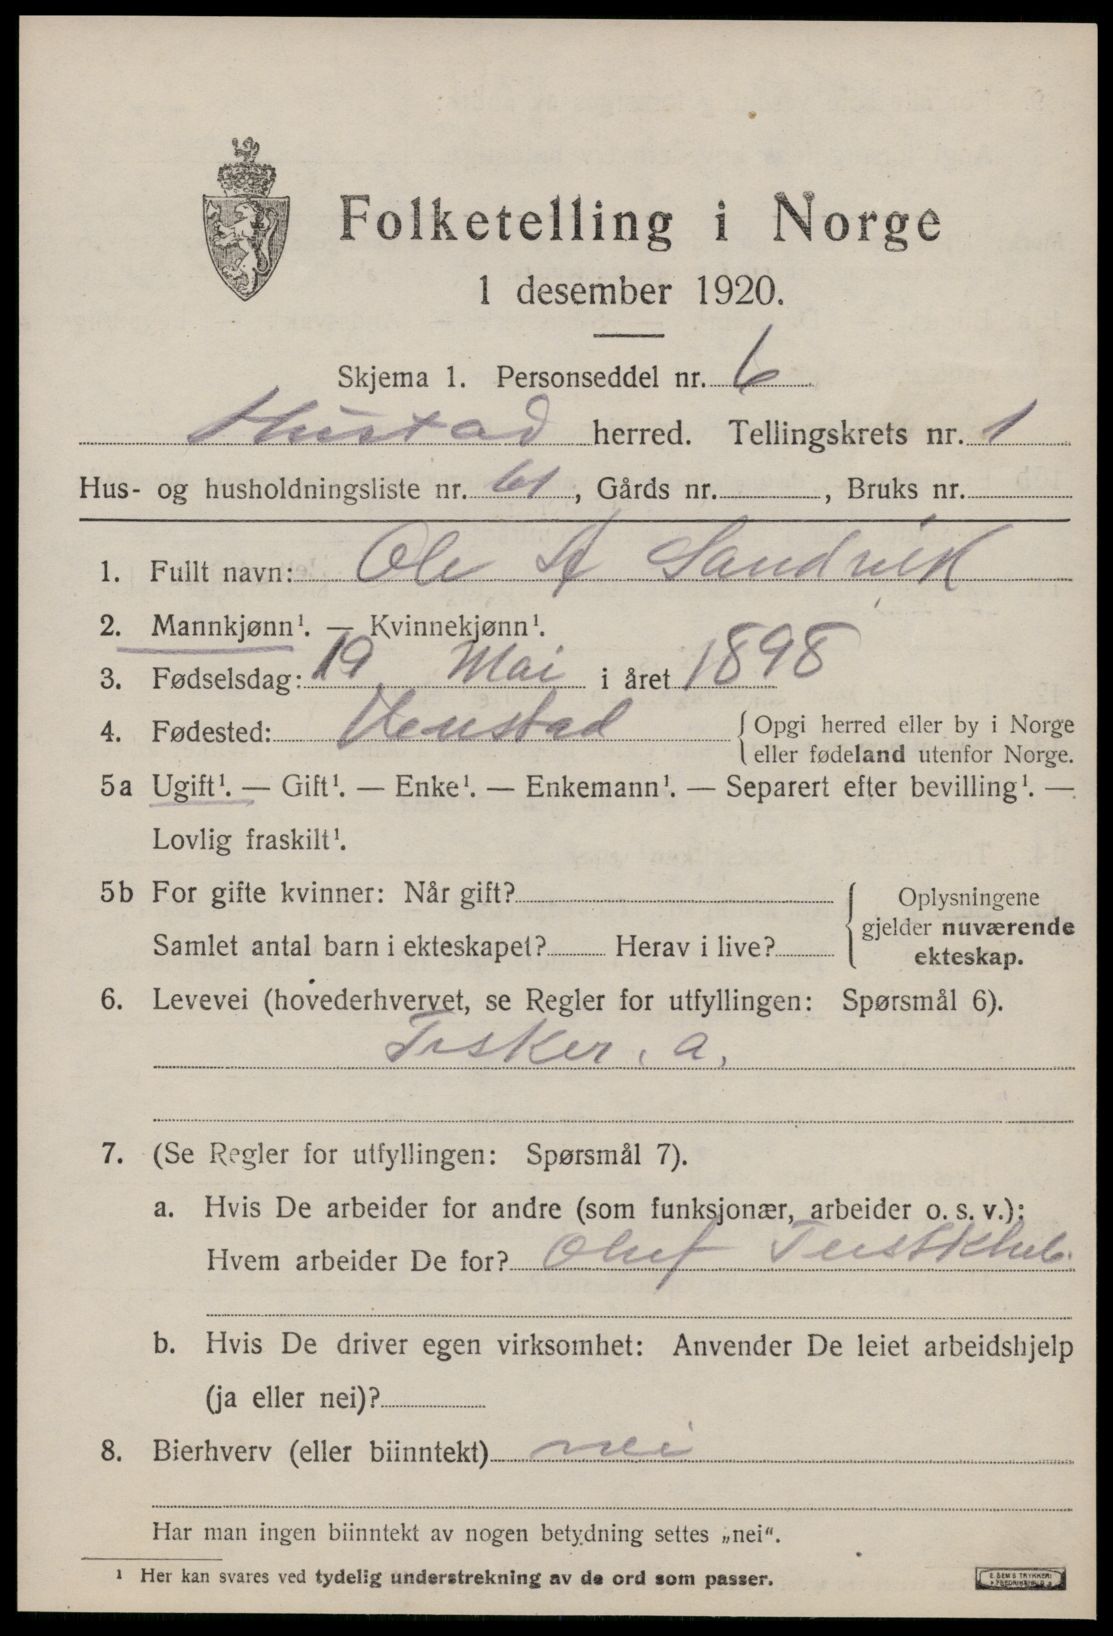 Folketelling i Norge
1 desember 1920.
Skjema 1. Personseddel nr. 6
Hustad herred. Tellingskrets nr. 1
Hus- og husholdningsliste nr. 61, Gårds nr. , Bruks nr.
1. Fullt navn: Ole A Sandvik
2. Mannkjønn¹. — Kvinnekjønn¹.
3. Fødselsdag: 19 Mai i året 1898
4. Fødested: Hustad {Opgi herred eller by i Norge
eller fødeland utenfor Norge.
5a Ugift¹. — Gift¹. — Enke¹. — Enkemann¹. — Separert efter bevilling¹. —
Lovlig fraskilt¹.
5b For gifte kvinner: Når gift? { Oplysningene
gjelder nuværende
Samlet antal barn i ekteskapet? Herav i live? ekteskap.
6. Levevei (hovederhvervet, se Regler for utfyllingen: Spørsmål 6).
Fisker. a.
7. (Se Regler for utfyllingen: Spørsmål 7).
a. Hvis De arbeider for andre (som funksjonær, arbeider o. s. v.):
Hvem arbeider De for? Oluf
b. Hvis De driver egen virksomhet: Anvender De leiet arbeidshjelp
(ja eller nei)?
8. Bierhverv (eller biinntekt) nei
Har man ingen biinntekt av nogen betydning settes „nei“.
¹ Her kan svares ved tydelig understrekning av de ord som passer.